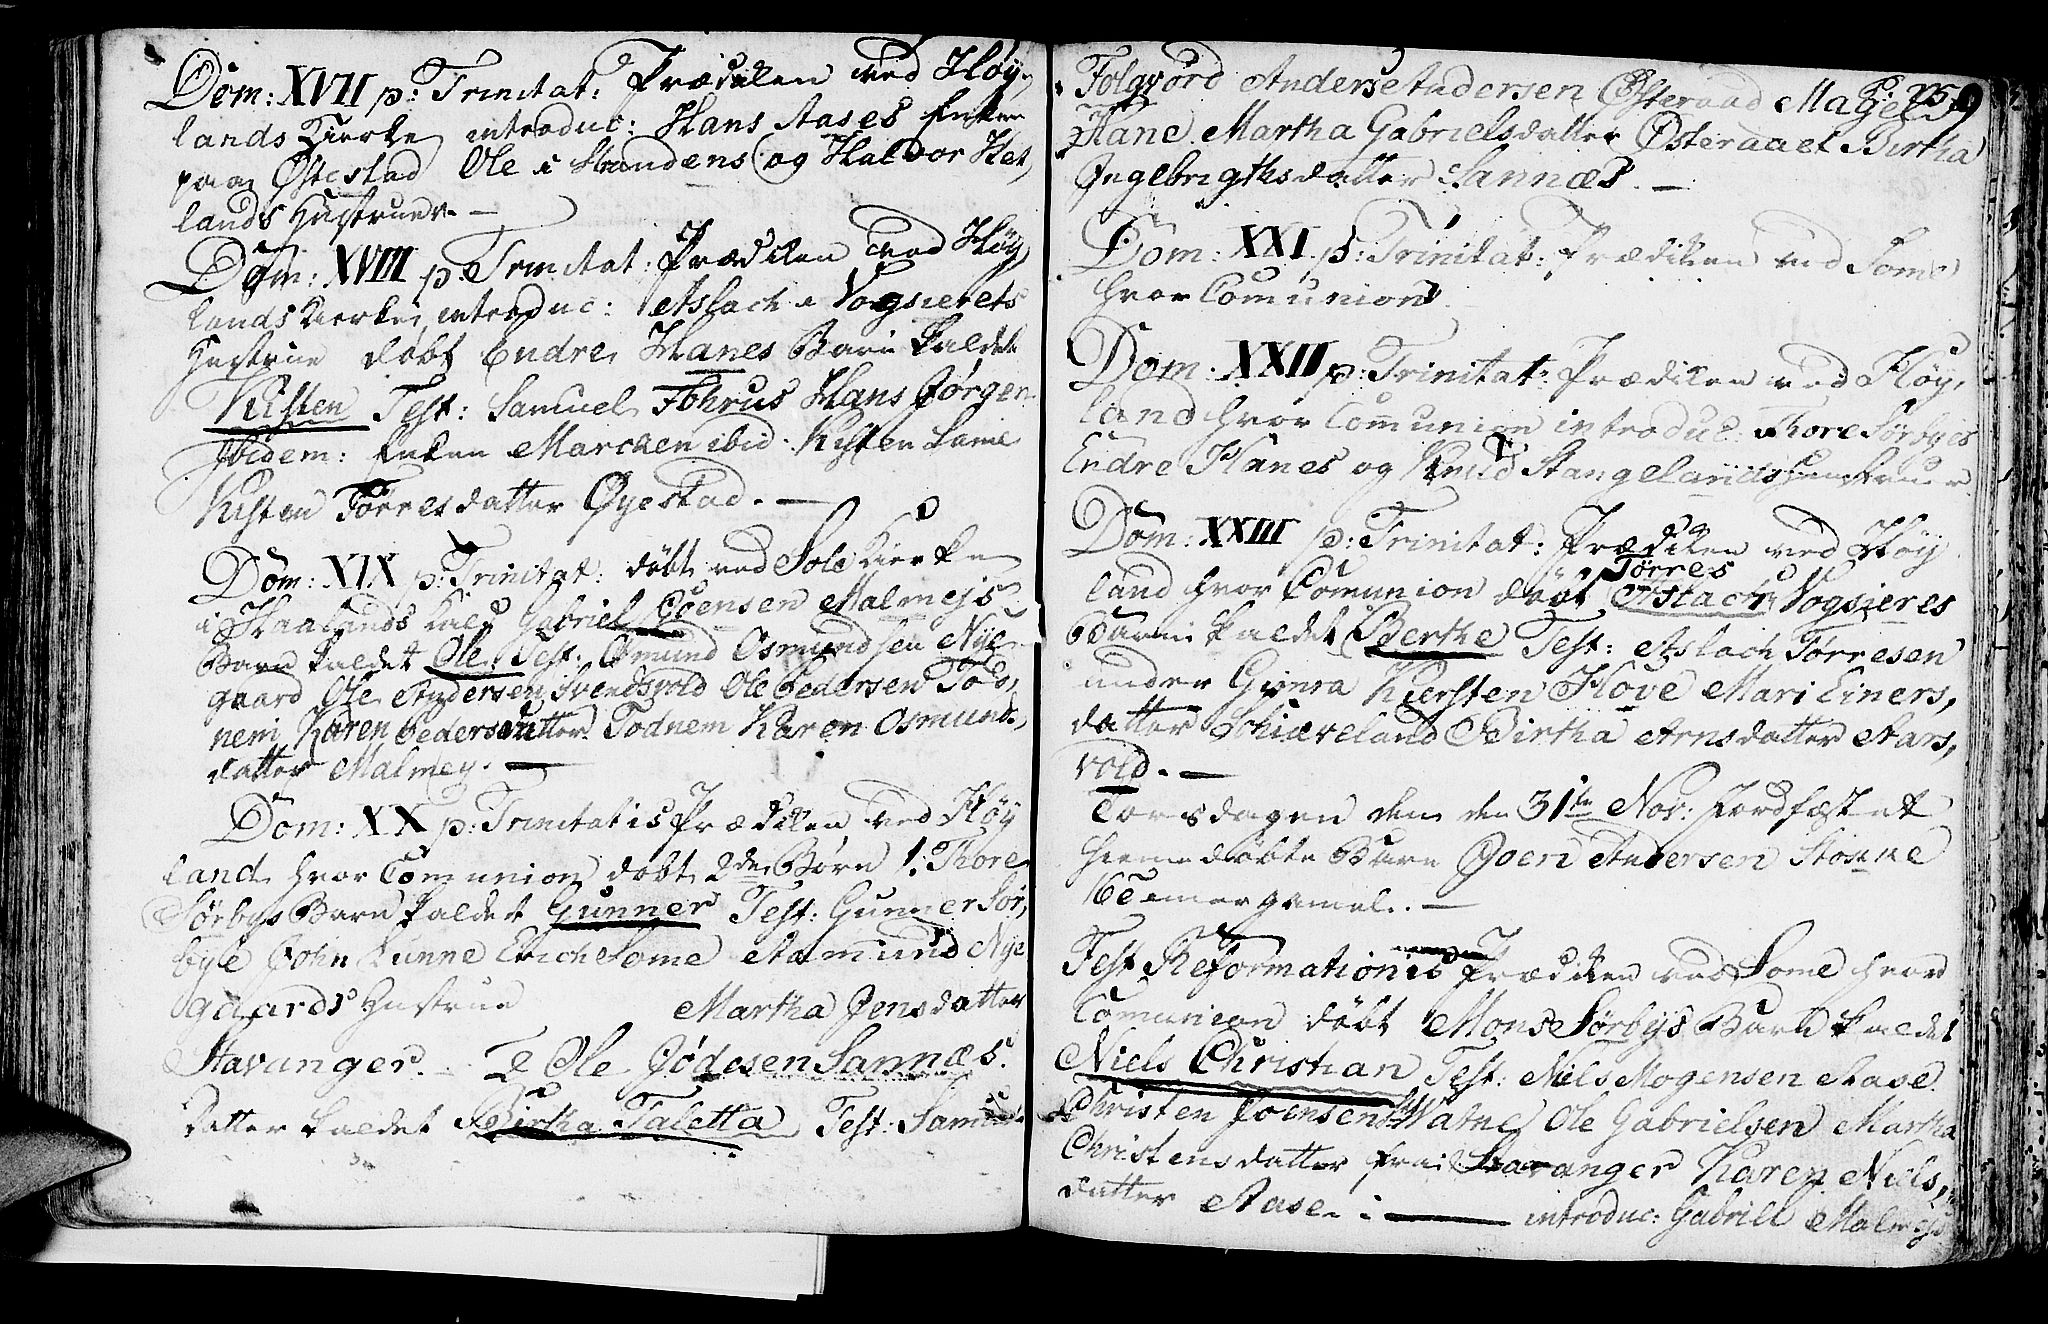 Dom: XVII p: Trinitat: Prædiken ved Höy,
lands Kierke, introduc: Hans Aases Enke
paa Østestad Ole i Strandens og Haldor Het,
lands Hustruer. —
Dom: XVIII p: Trinitat: Prædiken ved Höy
lands Kierke, introduc: Aslach i Vogsierets
Hustrue döbt Endre, Hanes Barn kaldet
Kisten Test: Samuel Fohrus Hans Jørgen
Ibidem: Enken Marchen ibid: Kisten Lame
Kisten Törresdatter Øyestad. —
Dom: XIX p: Trinitat: döbt ved Sole Kierke
i Haalands Kald Gabriel Joensen Malmejs
Barn kaldet Ole Test: Osmund Osmundsen Nye
gaard Ole Andersen Svendsvold Ole Pedersen Tod,
nem Karen Pedersdatter Todnem Karen Osmunds,
datter Malmey. —
Dom: XX p: Trinitatis Prædiken ved Höy
land, hvor Comunion döbt 2de Börn 1: Thore
Sörbys Barn kaldet Gunner Test: Gunner Sör,
bye John Lunne Erich Some Aamund Nye
gaards Hustrue Martha Jensdatter
Stavanger. 2 Ole Jödesen Sannæs.
Datter kaldet Birtha Taletta Test: Samuel
P: 259
Folgvord Anders Andersen Østeraad Magel
Hane Martha Gabrielsdatter Østeraaet Birtha
Ingebrigthsdatter Sannæs. —
Dom: XXI p: Trinitat: Prædiken ved Some
hvor Comunion
Dom: XXII p: Trinitat: Prædiken ved Höy,
land hvor Comunion introduc: Thore Sörbyes
Endre Hanes og Knud Stangelands Hustruer
Dom: XXIII p: Trinitat: Prædiken ved Höy
land hvor Comunion döbt Törres Vogsieres
Barn kaldet Berthe Test: Aslach Törresen
under Gunra Kiersten Hove Mari Einers,
datter Schiæveland Birtha Arnsdatter Aars,
vold. —
Torsdagen den den 31te Nov: Jordfæstet
hiemedöbte Barn Joen Andersen Stohne
16 gamel. —
Fest Reformationis Prædiken ved Some hvor
Comunion döbt Mons Sörbys Barn kaldet
Niels Christian Test: Niels Mogensen Aase
Christen Joensen Watne Ole Gabrielsen Martha
Christensdatter fra Stavanger Karen Niels,
datter Aase. — introduc: Gabriel Malmeys